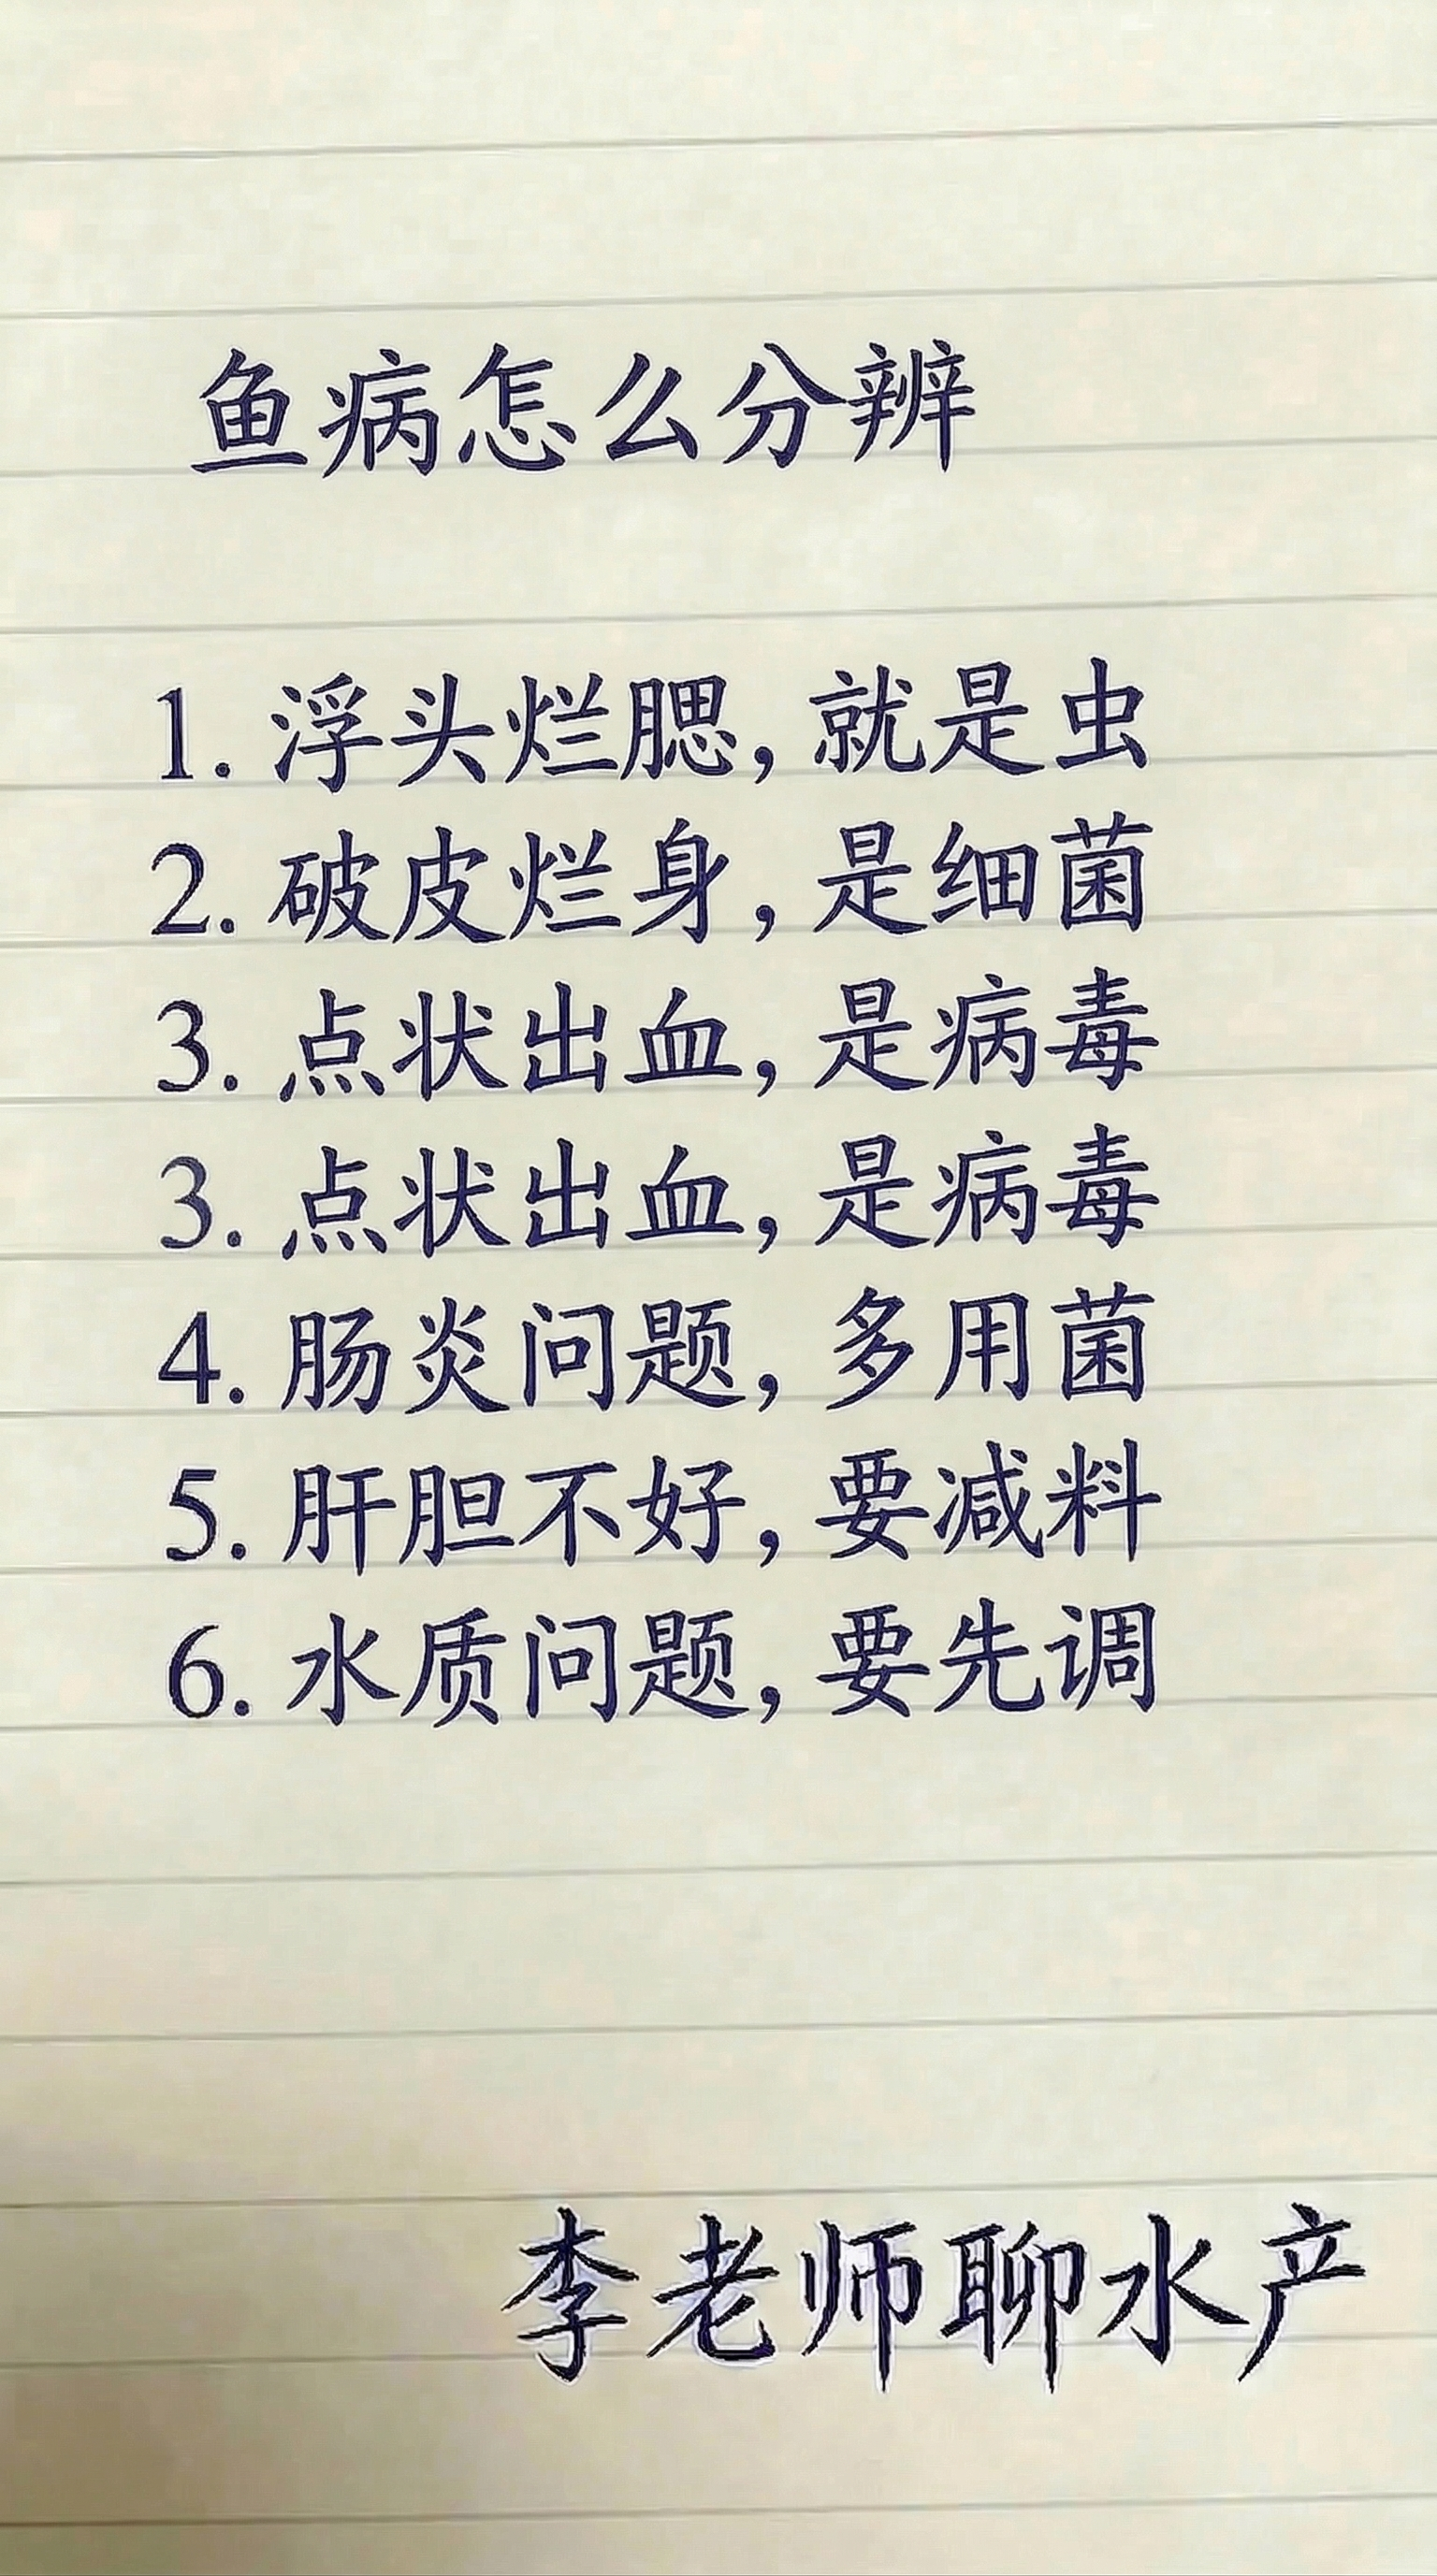 鱼病怎么分辨
1. 浮头烂腮,就是虫
2. 破皮烂身,是细菌
3. 点状出血,是病毒
3. 点状出血,是病毒
4. 肠炎问题,多用菌
5. 肝胆不好,要减料
6. 水质问题,要先调
李老师聊水产